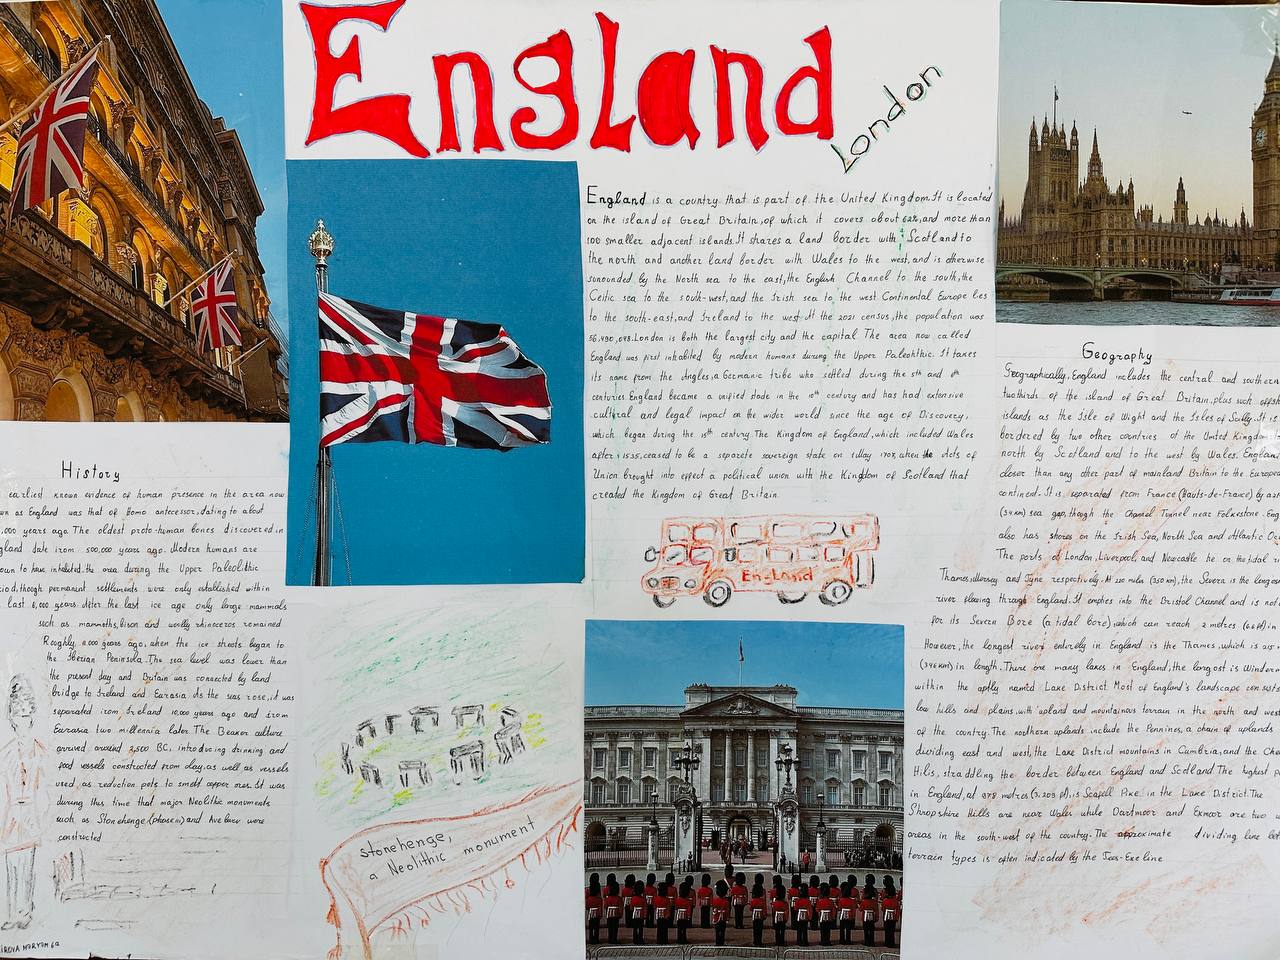 England
London
England is a country that is part of the United Kingdom. It is located
on the island of Great Britain, of which it covers about 62%, and more than
100 smaller adjacent islands. It shares a land border with Scotland to
the north and another land border with Wales to the west, and is otherwise
surrounded by the North sea to the east, the English Channel to the south, the
Celtic sea to the south-west, and the Irish sea to the west Continental Europe lies
to the south-east, and Ireland to the west. At the 2021 census, the population was
56,490,048. London is both the largest city and the capital The area now called
England was first inhabited by modern humans during the Upper Paleolithic. It takes
its name from the Angles, a Germanic tribe who settled during the 5th and 6th
centuries. England became a unified state in the 10th century and has had extensive
cultural and legal impact on the wider world since the age of Discovery,
which began during the 15th century. The Kingdom of England, which included Wales
after 1535, ceased to be a separate sovereign state on 1 May 1707, when the Acts of
Union brought into effect a political union with the Kingdom of Scotland that
created the Kingdom of Great Britain
England
History
earliest known evidence of human presence in the area now
as England was that of Homo antecessor, dating to about
,000 years ago. The oldest proto-human bones discovered in
gland date from 500,000 years ago. Modern humans are
own to have inhabited the area during the Upper Paleolithic
iod, though permanent settlements were only established within
last 6,000 years. After the last ice age only large mammals
such as mammoths, bison and woolly rhinoceros remained
Roughly 11,000 years ago, when the ice sheets began to
the Iberian Peninsula. The sea level was lower than
the present day and Britain was connected by land
bridge to Ireland and Eurasia. As the seas rose, it was
separated from Ireland 10,000 years ago and from
Eurasia two millennia later. The Beaker culture
arrived around 2,500 BC, introducing drinking and
food vessels constructed from clay, as well as vessels
used as reduction pots to smelt copper ores. It was
during this time that major Neolithic monuments
such as Stonehenge (phase III) and Avebury were
constructed
stonehenge,
a Neolithic monument
Geography
Geographically, England includes the central and southern
twothirds of the island of Great Britain, plus such offsh
islands as the Isle of Wight and the Isles of Scilly. It is
bordered by two other countries of the United Kingdom
north by Scotland and to the west by Wales. England
closer than any other part of mainland Britain to the Europea
continent. It is separated from France (Hauts-de-France) by a
(34 km) sea gap, though the Channel Tunnel near Folkestone. Eng
also has shores on the Irish Sea, North Sea and Atlantic Oc
The ports of London, Liverpool, and Newcastle lie on the tidal ri
Thames, Mersey and Tyne respectively. At 220 miles (350 km), the Severn is the longes
river flowing through England. It empties into the Bristol Channel and is not
for its Severn Bore (a tidal bore), which can reach 2 metres (6.6 ft) in
However, the longest river entirely in England is the Thames, which is 215
(346 km) in length. There are many lakes in England, the largest is Winderm
within the aptly named Lake District Most of England's landscape consists
low hills and plains, with upland and mountainous terrain in the north and west
of the country. The northern uplands include the Pennines, a chain of uplands
dividing east and west, the Lake District mountains in Cumbria, and the Che
Hills, straddling the border between England and Scotland The highest p
in England, at 978 metres (3,209 ft), is Scafell Pike in the Lake District. The
Shropshire Hills are near Wales while Dartmoor and Exmoor are two
areas in the south-west of the country. The approximate dividing line bet
terrain types is often indicated by the Tees-Exe line